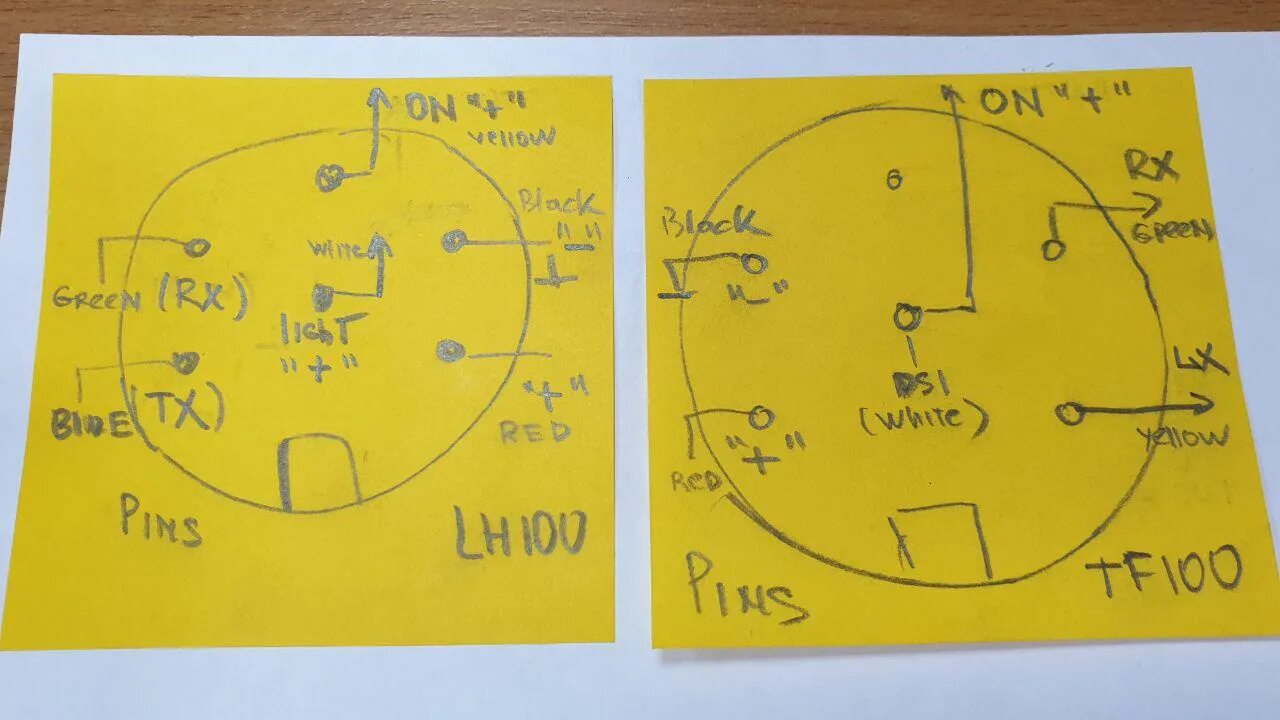 ON "+"
yellow
Black
"-"
white
GREEN (RX)
light
"+"
BLUE (TX)
"+"
RED
PINS
LH100
ON "+"
6
RX
GREEN
Black
"-"
DS1
(white)
yellow
RED
"+"
PINS
TF100